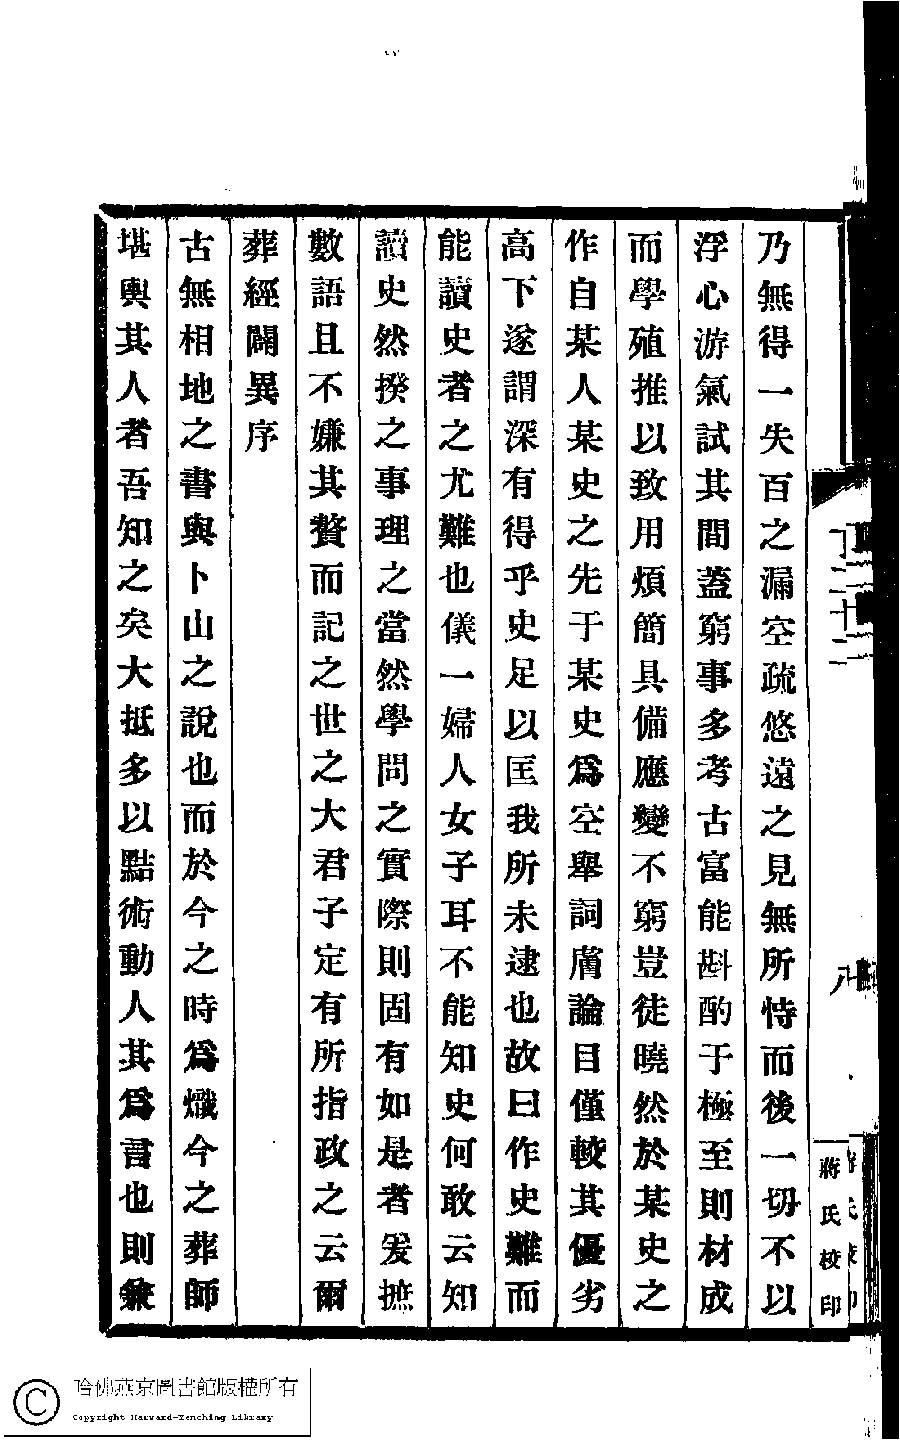 乃無得一失百之漏空疏悠遠之見無所恃而後一切不以
浮心游氣試其間蓋窮事多考古富能斟酌于極至則材成
而學殖推以致用煩簡具備應變不窮豈徒曉然於某史之
作自某人某史之先于某史爲空舉詞膚論目僅較其優劣
高下遂謂深有得乎史足以匡我所未逮也故曰作史難而
能讀史者之尤難也儀一婦人女子耳不能知史何敢云知
讀史然揆之事理之當然學問之實際則固有如是者爰摭
數語且不嫌其贅而記之世之大君子定有所指政之云爾
葬經闢異序
古無相地之書與卜山之說也而於今之時爲熾今之葬師
堪輿其人者吾知之矣大抵多以點術動人其爲言也則兼
蔣氏校印
哈佛燕京圖書館版權所有
Copyright Harvard-Yenching Library